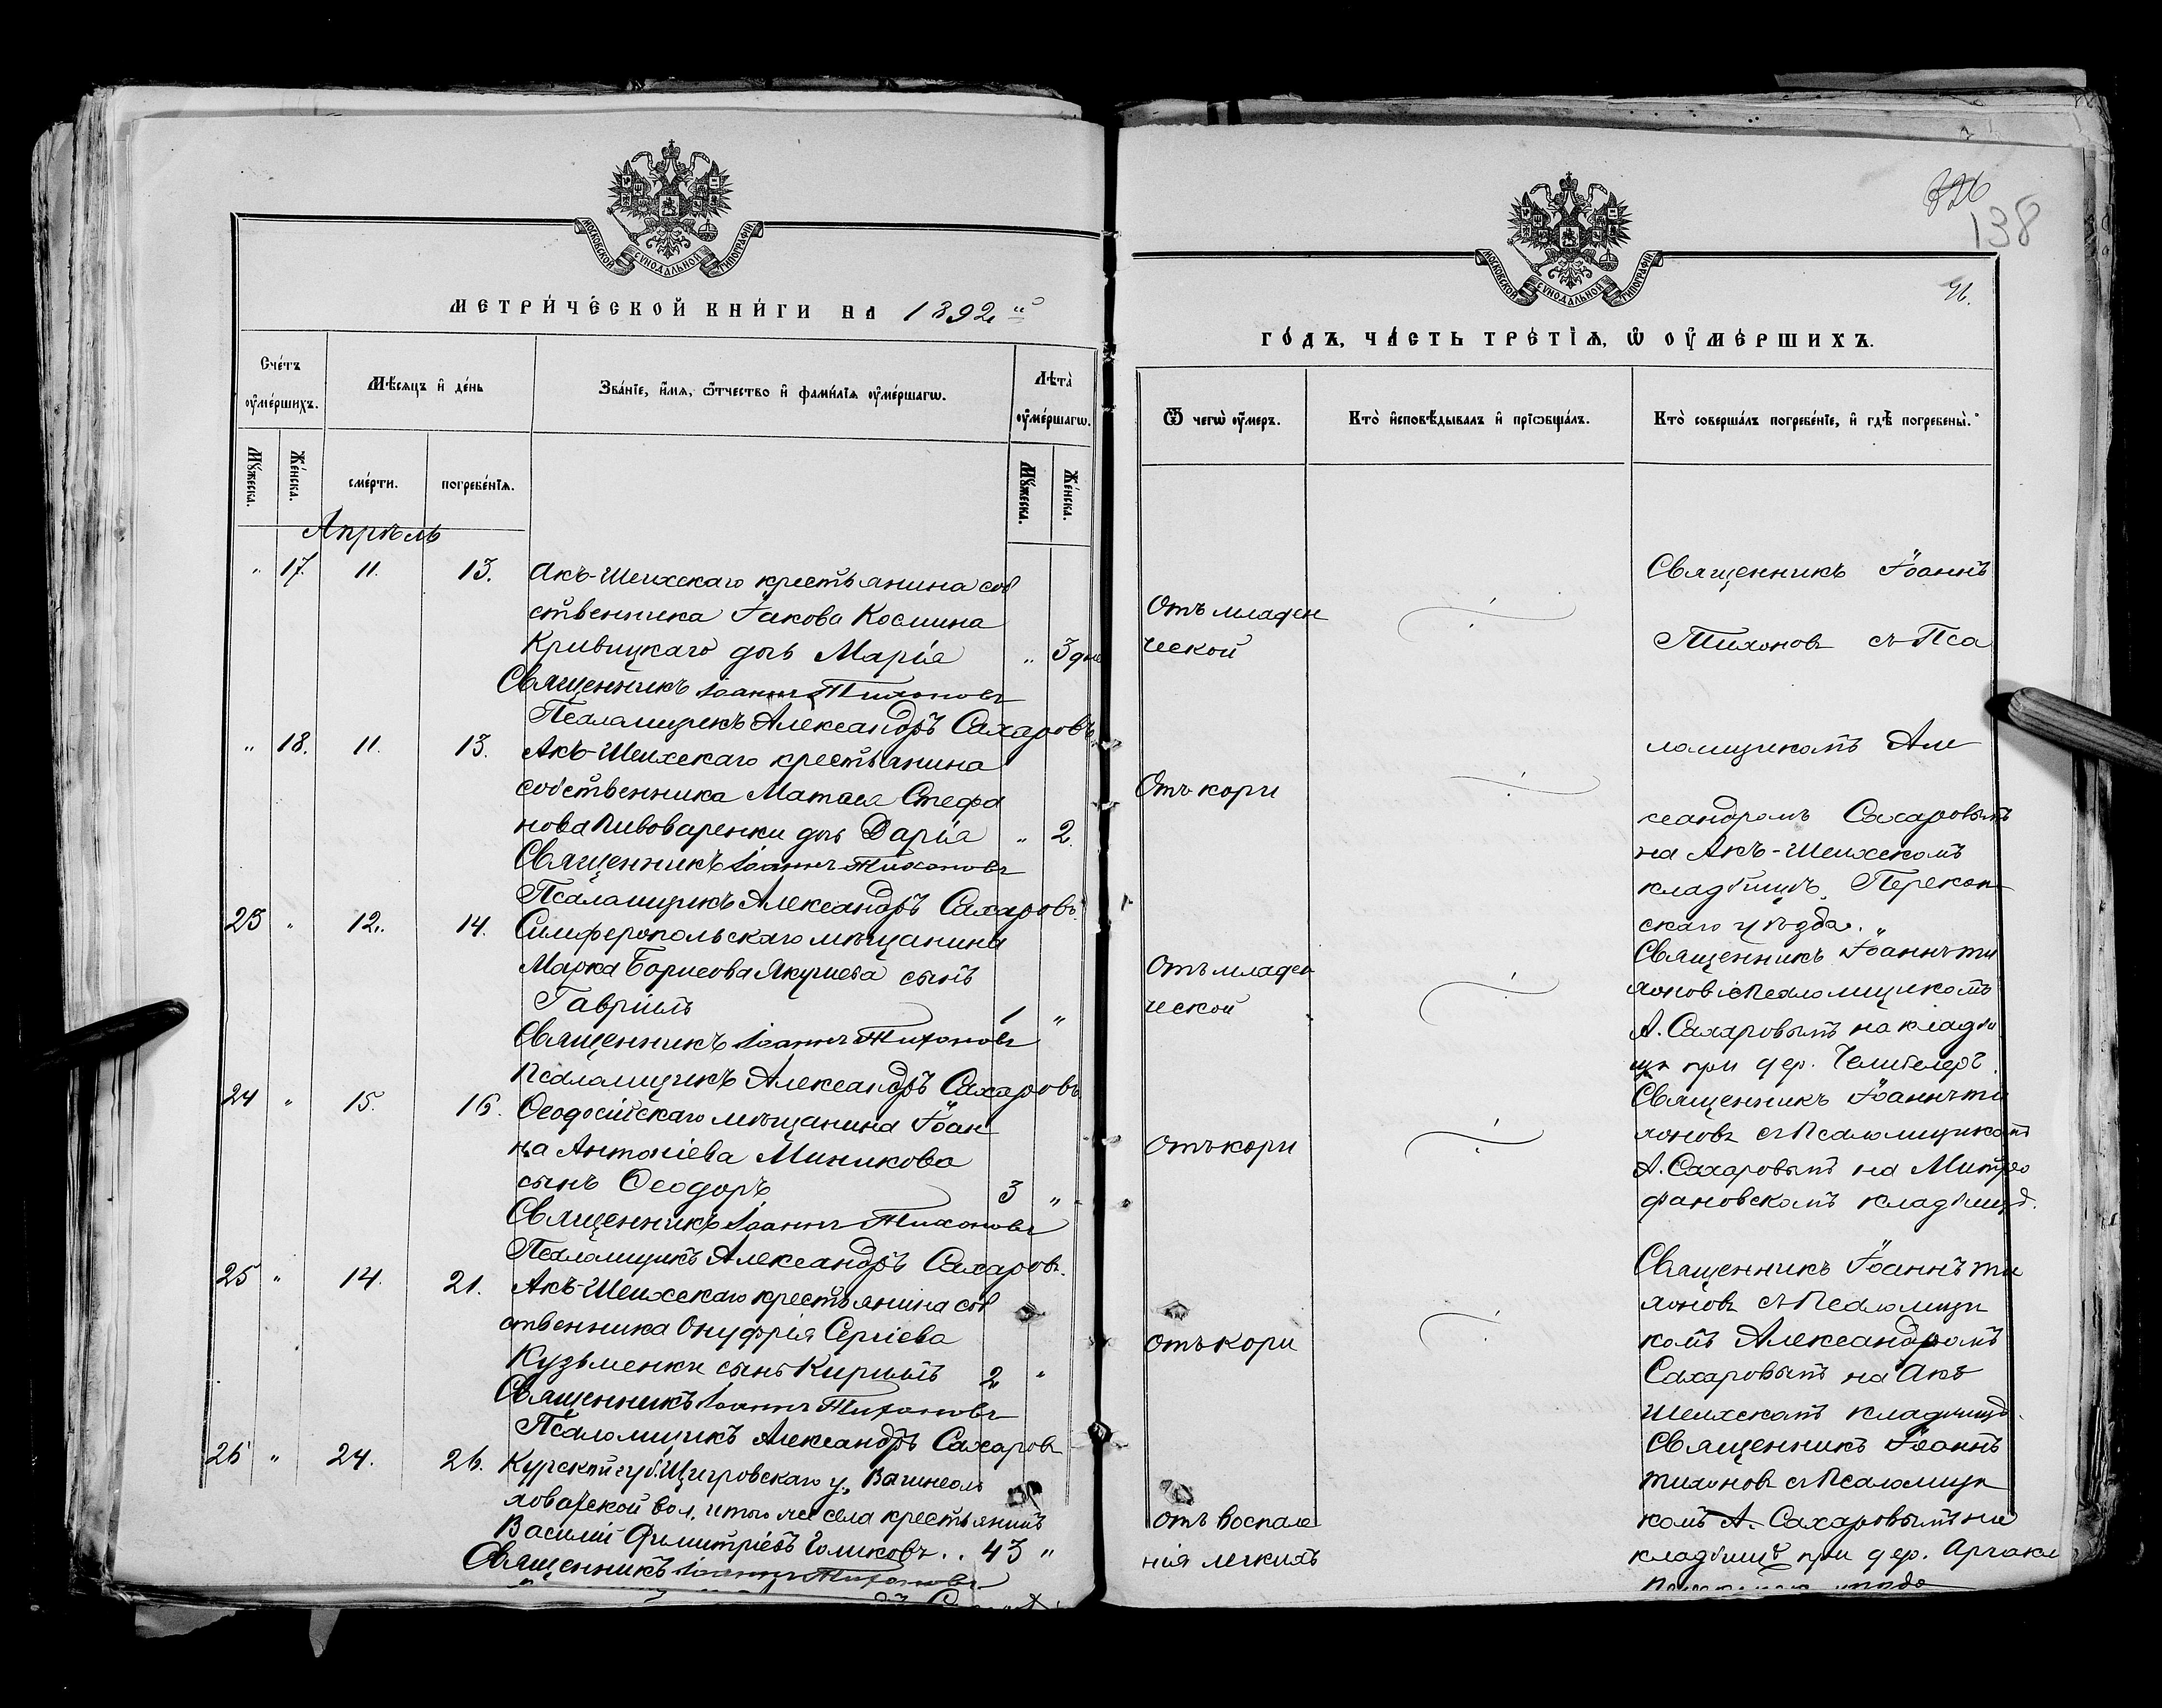 МОСКОВСКОЙ СѴНОДАЛЬНОЙ ТИПОГРАФІИ
МЕТРИЧЕСКОЙ КНИГИ НА 1892 й
Счетъ оумершихъ.
Мѣсяцъ и день
Званіе, имя, ѿтчество и фамилія оумершагѡ.
Лѣта оумершагѡ.
Мужеска.
Женска.
смерти.
погребенія.
Мужеска.
Женска.
Апрѣль
" 17. 11. 13. Акъ-Шеихскаго крестьянина соб
ственника Іакова Космина
Кривицкаго дочь Марія " 3 дне
Священникъ Іоаннъ Тихоновъ
Псаломщикъ Александръ Сахаровъ
" 18. 11. 13. Акъ-Шеихскаго крестьянина
собственника Матвея Стефа
нова Пивоваренки дочь Дарія " 2.
Священникъ Іоаннъ Тихоновъ
Псаломщикъ Александръ Сахаровъ
23 " 12. 14. Симферопольскаго мѣщанина
Марка Борисова Якушева сынъ
Гавріилъ 1 "
Священникъ Іоаннъ Тихоновъ
Псаломщикъ Александръ Сахаровъ
24 " 15. 16. Ѳеодосійскаго мѣщанина Іоан
на Антоніева Миникова
сынъ Ѳеодоръ 3 "
Священникъ Іоаннъ Тихоновъ
Псаломщикъ Александръ Сахаровъ.
25 " 14. 21. Акъ-Шеихскаго крестьянина соб
ственника Онуфрія Сергіева
Кузьменки сынъ Кириллъ 2 "
Священникъ Іоаннъ Тихоновъ
Псаломщикъ Александръ Сахаровъ
26 " 24. 26. Курской губ. Щигровскаго у.,
вол. и того же села крестьянинъ
Василій Димитріевъ Голиковъ . . 43 "
Священникъ Іоаннъ Тихоновъ
МОСКОВСКОЙ СѴНОДАЛЬНОЙ ТИПОГРАФІИ
138
ГОДЪ, ЧАСТЬ ТРЕТІЯ, Ѡ ОУМЕРШИХЪ.
Ѿ чегѡ оумеръ.
Кто исповѣдывалъ и пріѡбщалъ.
Кто совершалъ погребеніе, и гдѣ погребены.
Священникъ Іоаннъ
Отъ младен
Тихоновъ съ Пса
ческой
ломщикомъ Але
Отъ кори
ксандромъ Сахаровымъ
на Акъ-Шеихскомъ
кладбищѣ, Перекоп
скаго уѣзда.
Священникъ Іоаннъ Ти
Отъ младен
хоновъ съ Псаломщикомъ
ческой
А. Сахаровымъ на кладби
щѣ при дер.
Священникъ Іоаннъ Ти
Отъ кори
хоновъ съ Псаломщикомъ
А. Сахаровымъ на Митро
фановскомъ кладбищѣ.
Священникъ Іоаннъ Ти
хоновъ съ Псаломщи
Отъ кори
комъ Александромъ
Сахаровымъ на Акъ
Шеихскомъ кладбищѣ.
Священникъ Іоаннъ
Тихоновъ съ Псаломщи
Отъ воспале
комъ А. Сахаровымъ на
нія легкихъ
кладбищѣ при дер.